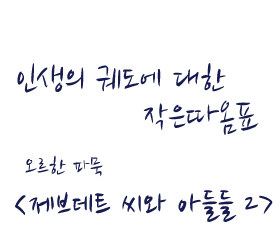 인생의 궤도에 대한
작은따옴표
오르한 파묵
<제브데트 씨와 아들들 2>